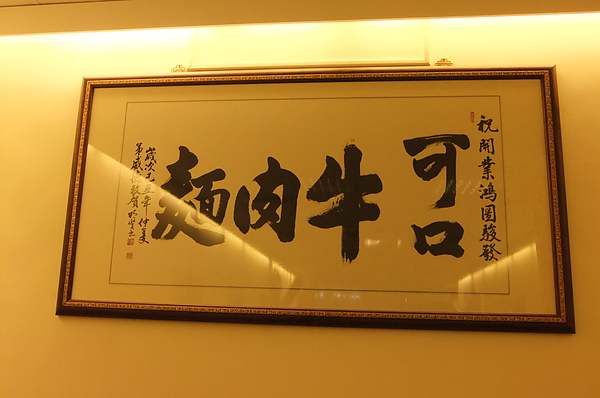 祝開業鴻圖駿發
可口
牛肉麵
歲次己丑年仲夏
敬賀